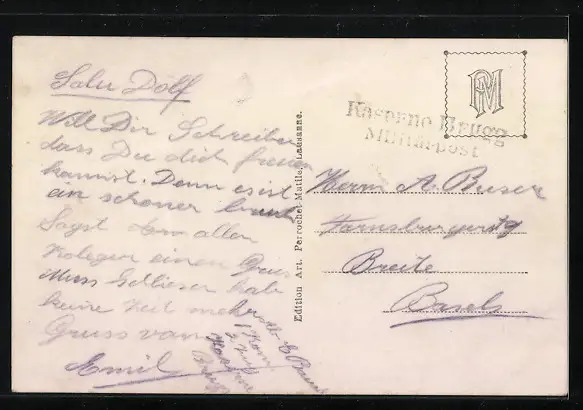 Salu Dölf
Will Dir Schreiben
dass Du dich freuen
kannst. Denn es ist
ein schöner
Sagst dem allen
Kolegen einen Grus
Muss Schliesen hab
keine Zeit mehr
Gruss vom
Emil
Kaserne
Brugg
Edition Art. Perrochet-Matile, Lausanne.
PM
Kaserne Brugg
Militärpost
Herrn A. Buser
Farnsburgerstr
Breite
Basel